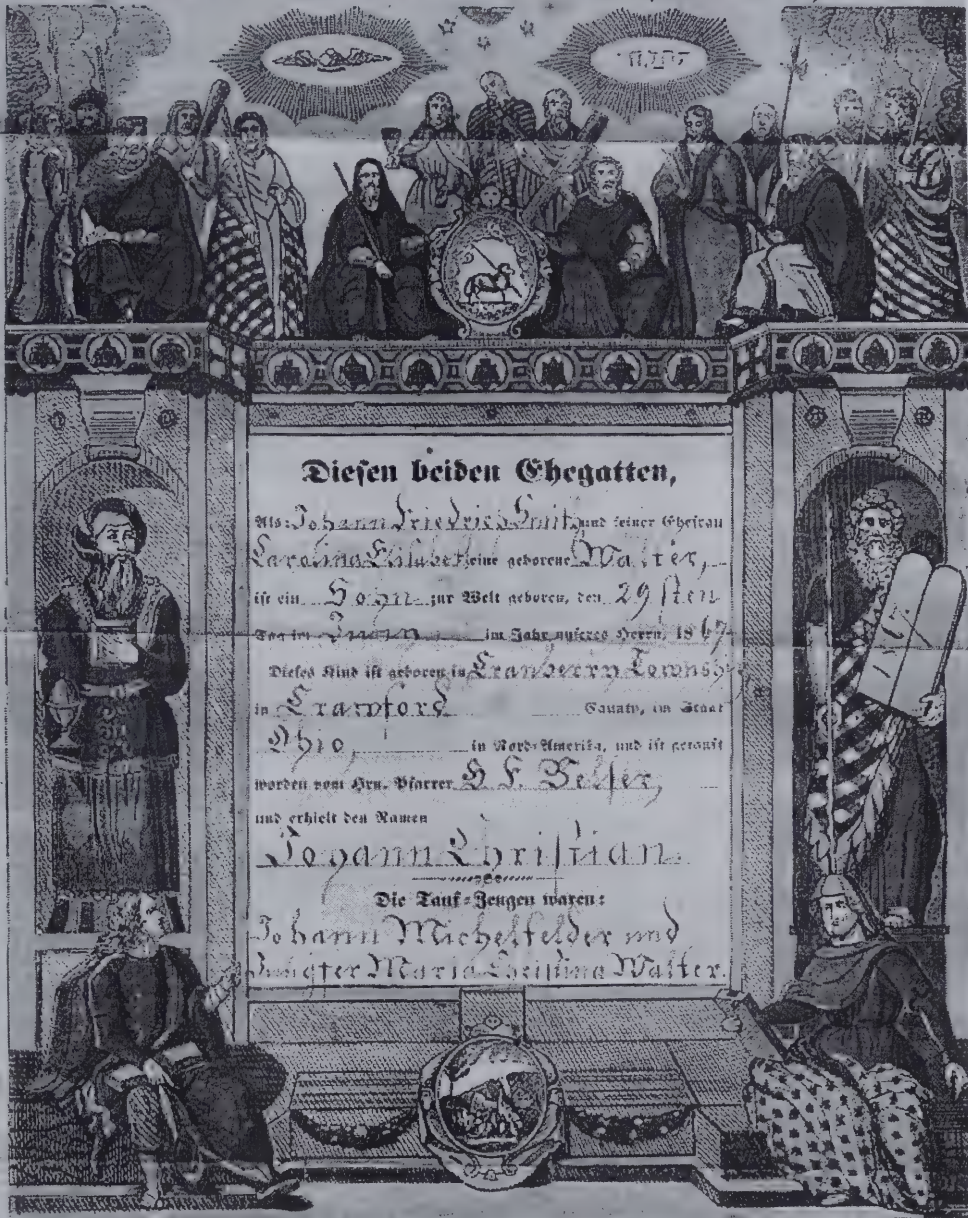 Diesen beiden Ehegatten,
Als: Johann Friedrich Smit und seiner Ehefrau
Carolina Elisabeth eine geborene Walter,
ist ein Sohn zur Welt geboren, den 29sten
Tag im im Jahr unseres Herrn, 1867
Dieses Kind ist geboren in Cranberry Townsh
in Crawford County, im Staat
Ohio, in Nord-Amerika, und ist getauft
worden vom Hrn. Pfarrer H. F. Belser,
und erhielt den Namen
Johann Christian.
Die Tauf-Zeugen waren:
Johann Michelfelder und
Maria Christina Walter.